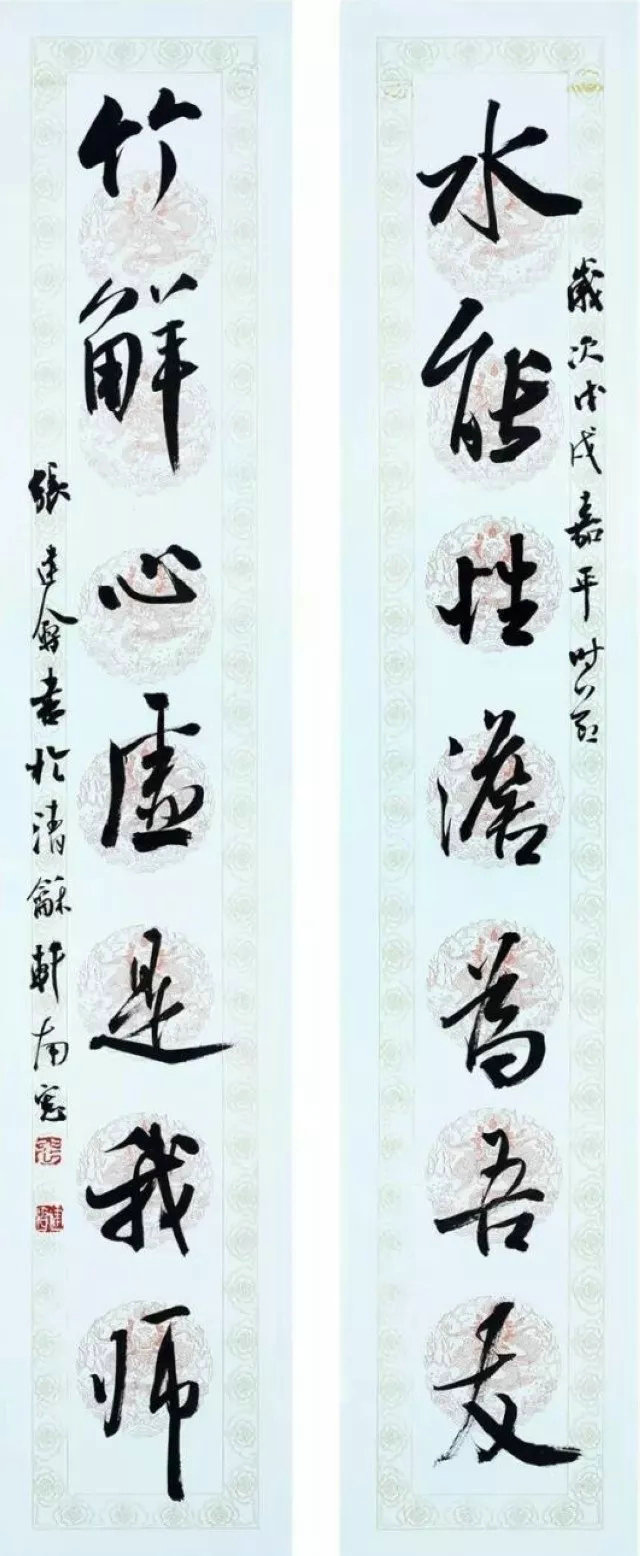 歲次戊戌嘉平时節
水能性澹為吾友
竹解心虛是我师
張建會書於清龢軒南窓